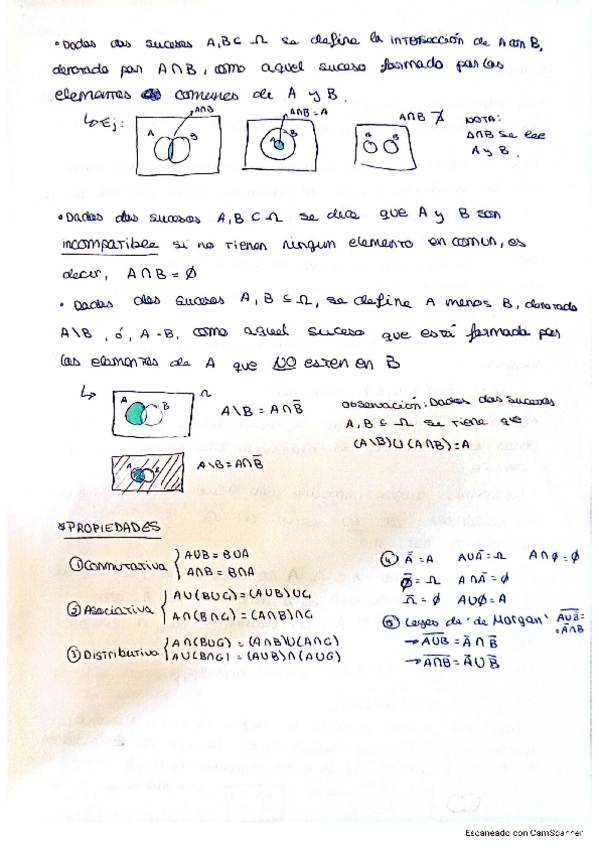 • Dados dos sucesos A, B ⊂ Ω se define la intersección de A con B,
denotado por A∩B, como aquel suceso formado por los
elementos comunes de A y B.
↳ Ej:
A∩B
A B
A∩B = A
A B
A∩B
A B
NOTA:
A∩B se lee
A y B.
• Dados dos sucesos A, B ⊂ Ω se dice que A y B son
incompatible si no tienen ningun elemento en comun, es
decir, A∩B = ∅
• Dados dos sucesos A, B ⊆ Ω, se define A menos B, denotado
A\B, ó, A-B, como aquel suceso que está formado por
los elementos de A que NO esten en B
↳
A B Ω
A\B = A∩B̅
A B
A\B = A∩B̅
Observación: Dados dos sucesos
A, B ⊆ Ω se tiene que
(A\B)∪(A∩B) = A
* PROPIEDADES
① Conmutativa { A∪B = B∪A
A∩B = B∩A
② Asociativa { A∪(B∪C) = (A∪B)∪C
A∩(B∩C) = (A∩B)∩C
③ Distributiva { A∩(B∪C) = (A∩B)∪(A∩C)
A∪(B∩C) = (A∪B)∩(A∪C)
④ A̿ = A A∪A̅ = Ω A∩∅ = ∅
∅̅ = Ω A∩A̅ = ∅
Ω̅ = ∅ A∪∅ = A
⑤ Leyes de 'de Morgan' A̅∪̅B̅ =
= A̅∩B̅
→ A̅∪̅B̅ = A̅ ∩ B̅
→ A̅∩̅B̅ = A̅ ∪ B̅
Escaneado con CamScanner